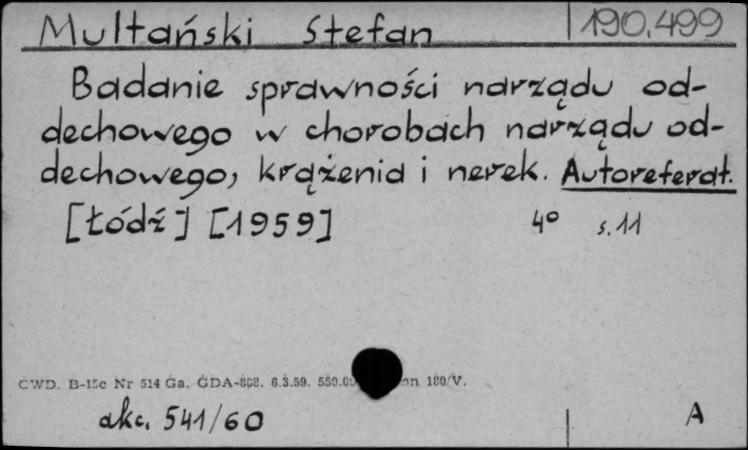 Multański Stefan 190.499
Badanie sprawności narządu od-
dechowego w chorobach narządu od-
dechowego, krążenia i nerek. Autoreferat.
[Łódź] [1959] 4° s. 11
CWD. B-15c Nr 514 Ga. GDA-868. 6.3.59. 180/V.
akc. 541/60 A